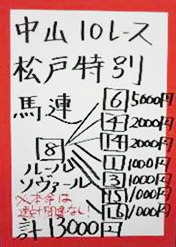 中山10レース
松戸特別
馬連
8
6 5000円
4 2000円
14 2000円
11 1000円
3 1000円
15 1000円
16 1000円
ルール
ソヴァール
計13000円